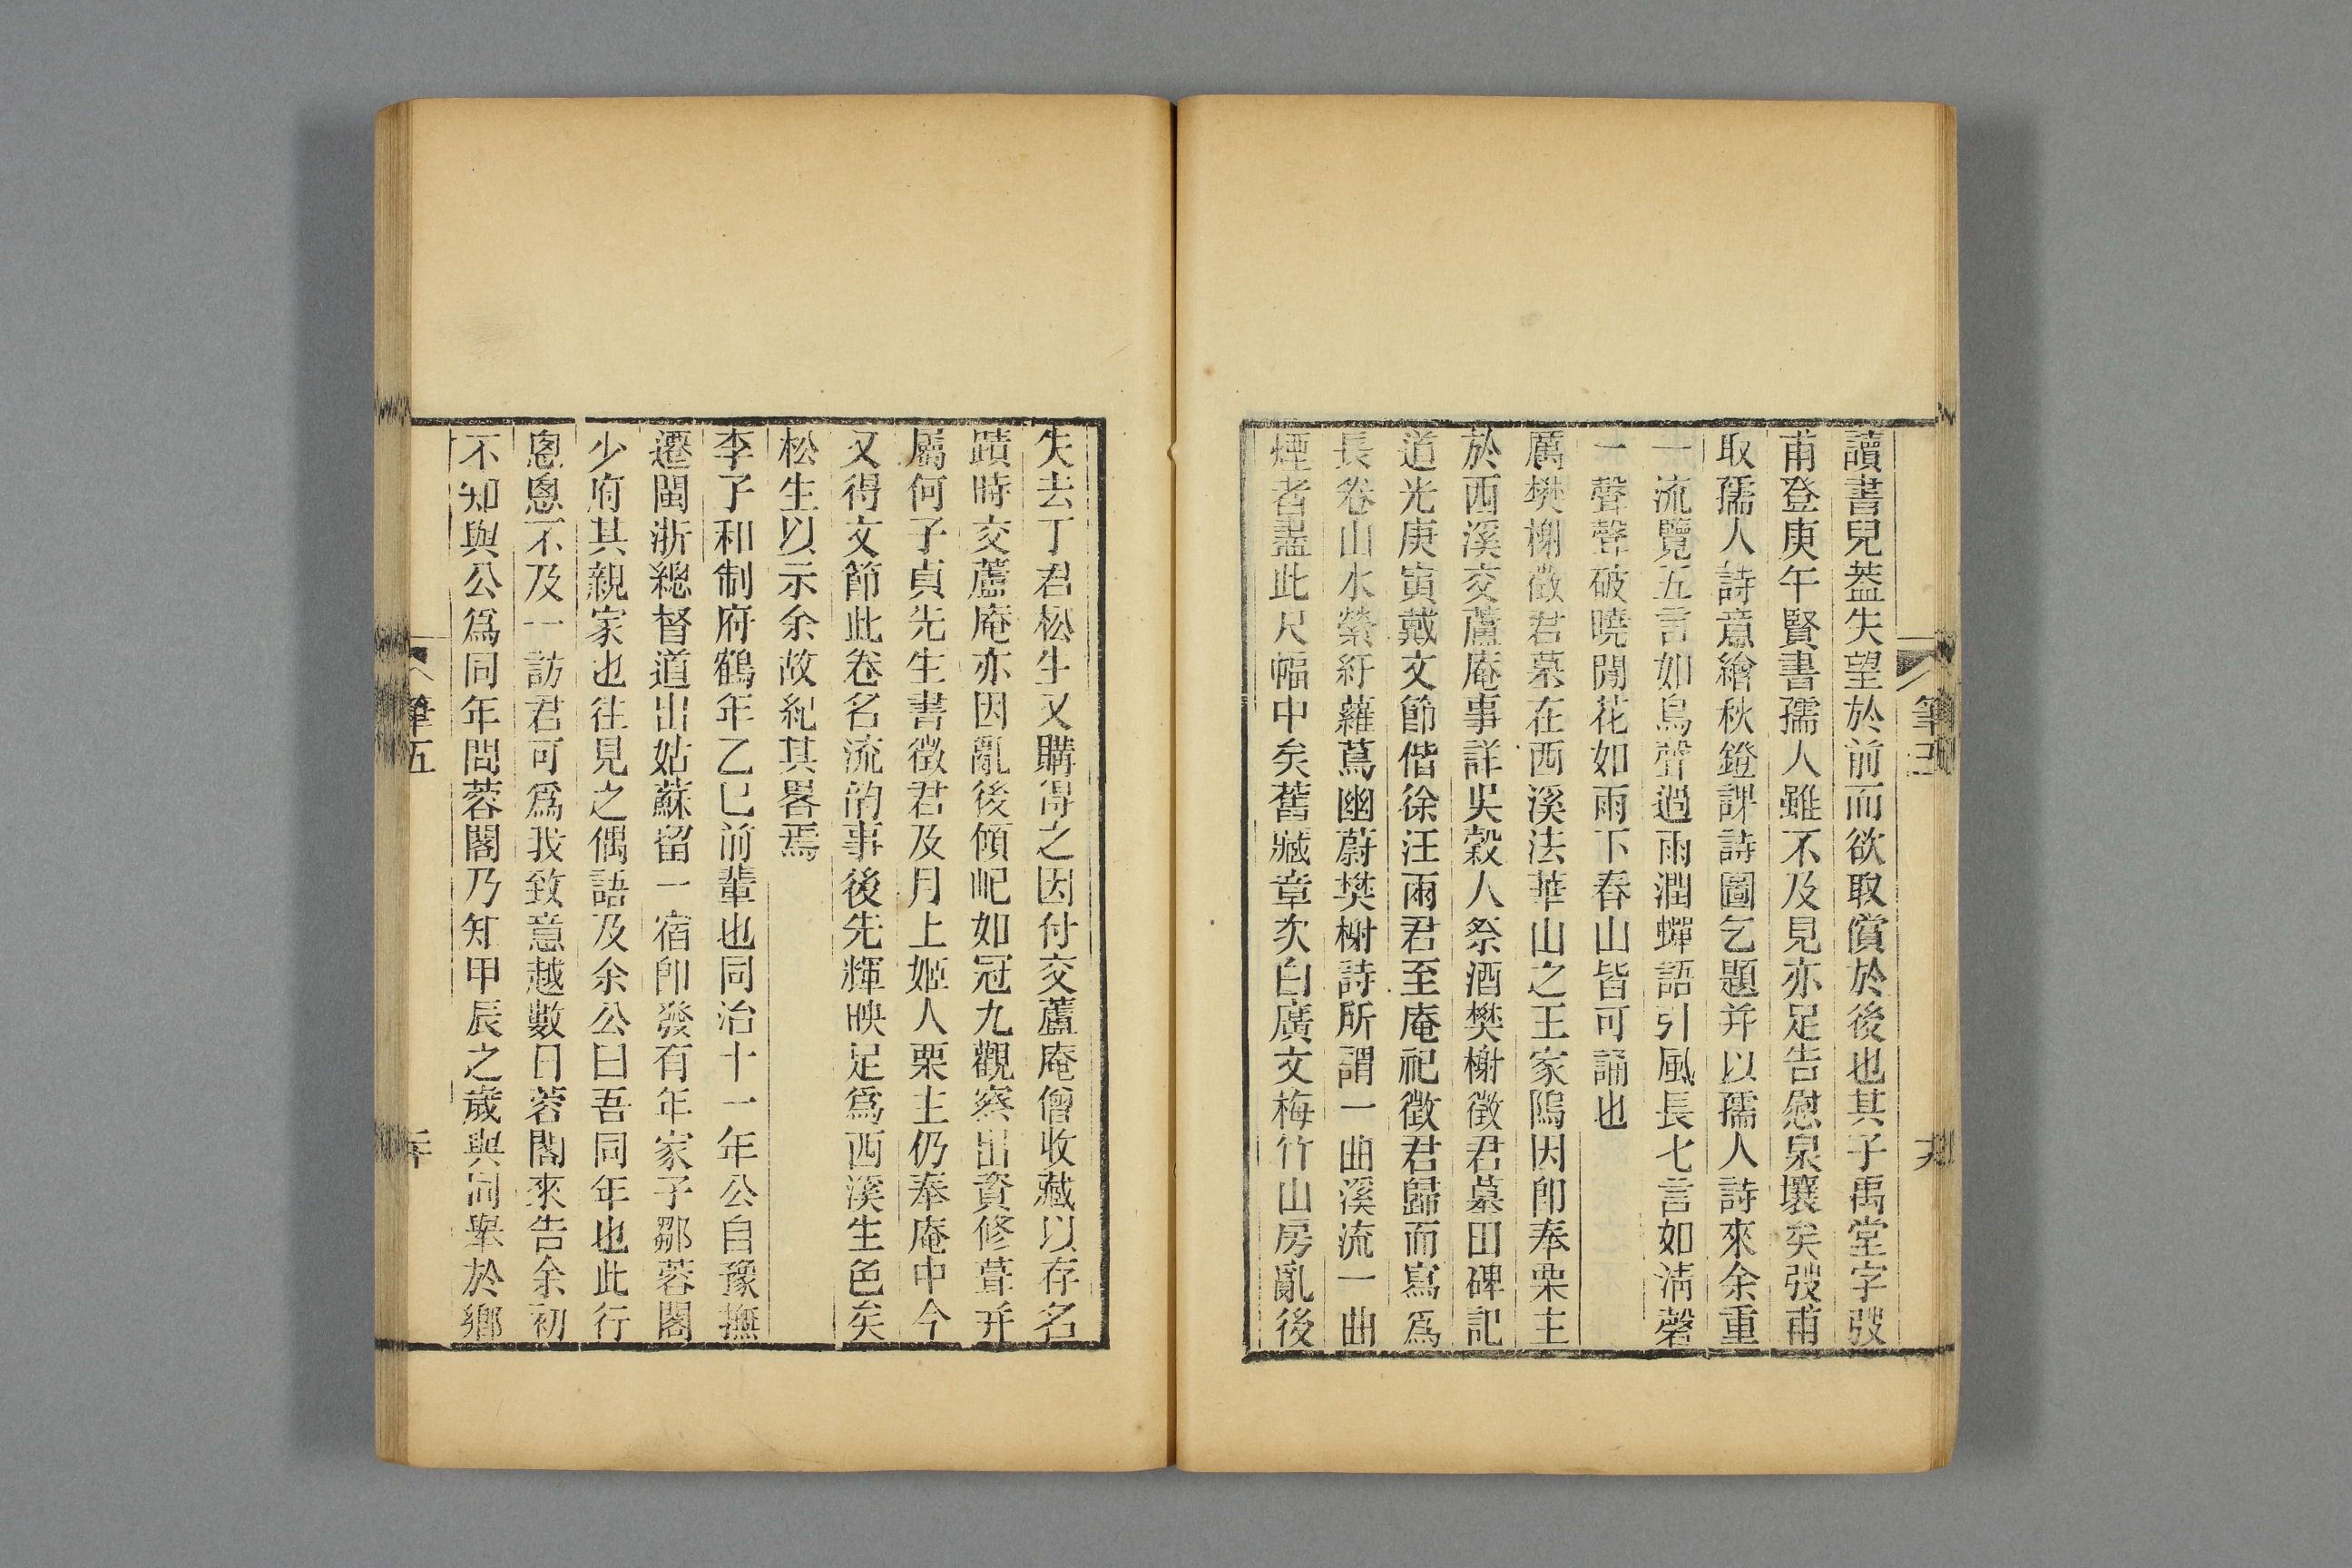 讀書兒葢失望於前而欲取償於後也其子禹堂字弢
甫登庚午賢書孺人雖不及見亦足告慰泉壤矣弢甫
取孺人詩意繪秋鐙課詩圖乞題并以孺人詩來余重
一流覽五言如鳥聲過雨潤蟬語引風長七言如淸磬
一聲聲破曉閒花如雨下春山皆可誦也
厲樊榭徵君墓在西溪法華山之王家隖因卽奉栗主
於西溪交蘆庵事詳吳穀人祭酒樊榭徵君墓田碑記
道光庚寅戴文節偕徐汪兩君至庵祀徵君歸而寫爲
長卷山水縈紆蘿蔦幽蔚樊榭詩所謂一曲溪流一曲
煙者盡此尺幅中矣舊藏章次白廣文梅竹山房亂後
筆五
失去丁君松生又購得之因付交蘆庵僧收藏以存名
蹟時交蘆庵亦因亂後傾圮如冠九觀察出資修葺幷
屬何子貞先生書徵君及月上姬人栗主仍奉庵中今
又得文節此卷名流韵事後先輝映足爲西溪生色矣
松生以示余故紀其畧焉
李子和制府鶴年乙巳前輩也同治十一年公自豫撫
遷閩浙總督道出姑蘇留一宿卽發有年家子鄒蓉閣
少府其親家也往見之偶語及余公曰吾同年也此行
悤悤不及一訪君可爲我致意越數日蓉閣來告余初
不知與公爲同年問蓉閣乃知甲辰之歲與同舉於鄉
筆五